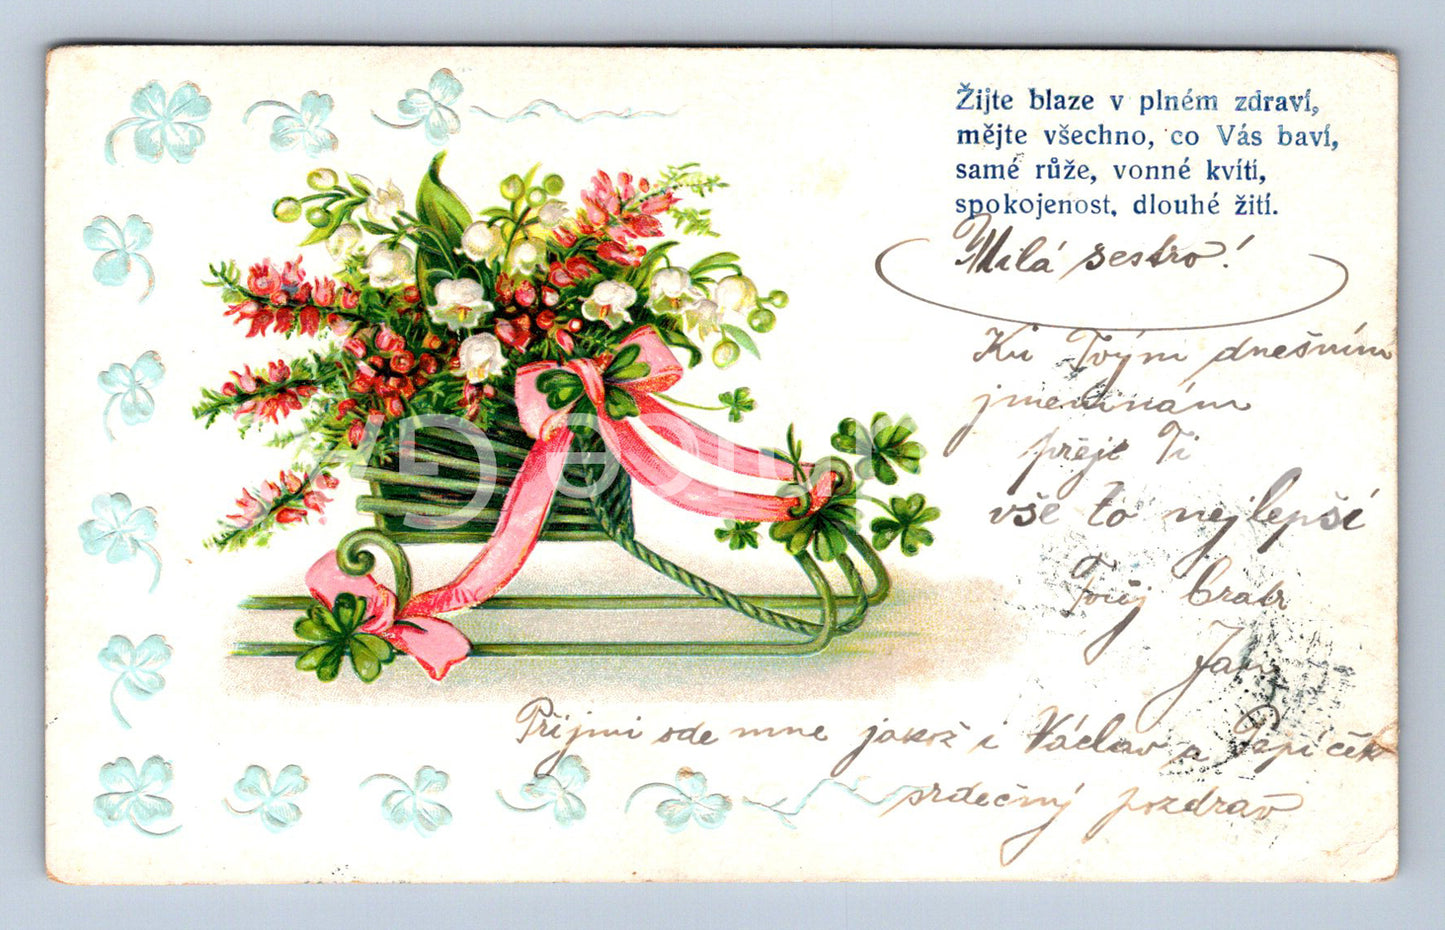 Žijte blaze v plném zdraví,
mějte všechno, co Vás baví,
samé růže, vonné kvítí,
spokojenost, dlouhé žití.
Milá sestro!
Ku Tvým dnešním
jmeninám
přeji Ti
vše to nejlepší
Tvůj bratr
Jan
Přijmi ode mne jakož i Václav a
srdečný pozdrav